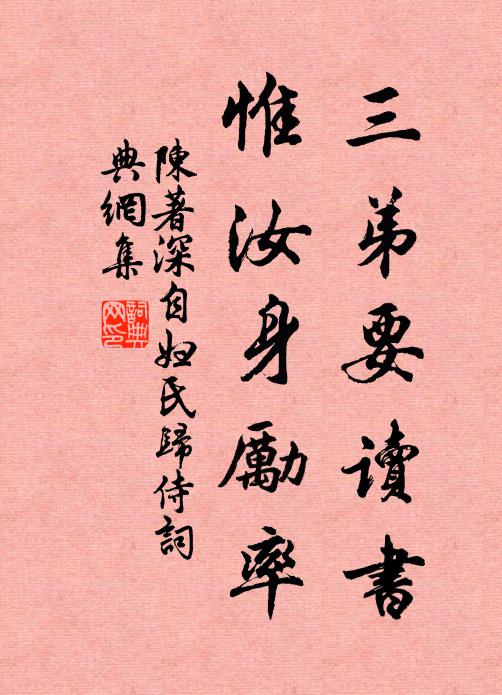 三弟要读書
惟汝身勵率
陳著深自妣氏歸侍詞
典網集
詞典網印